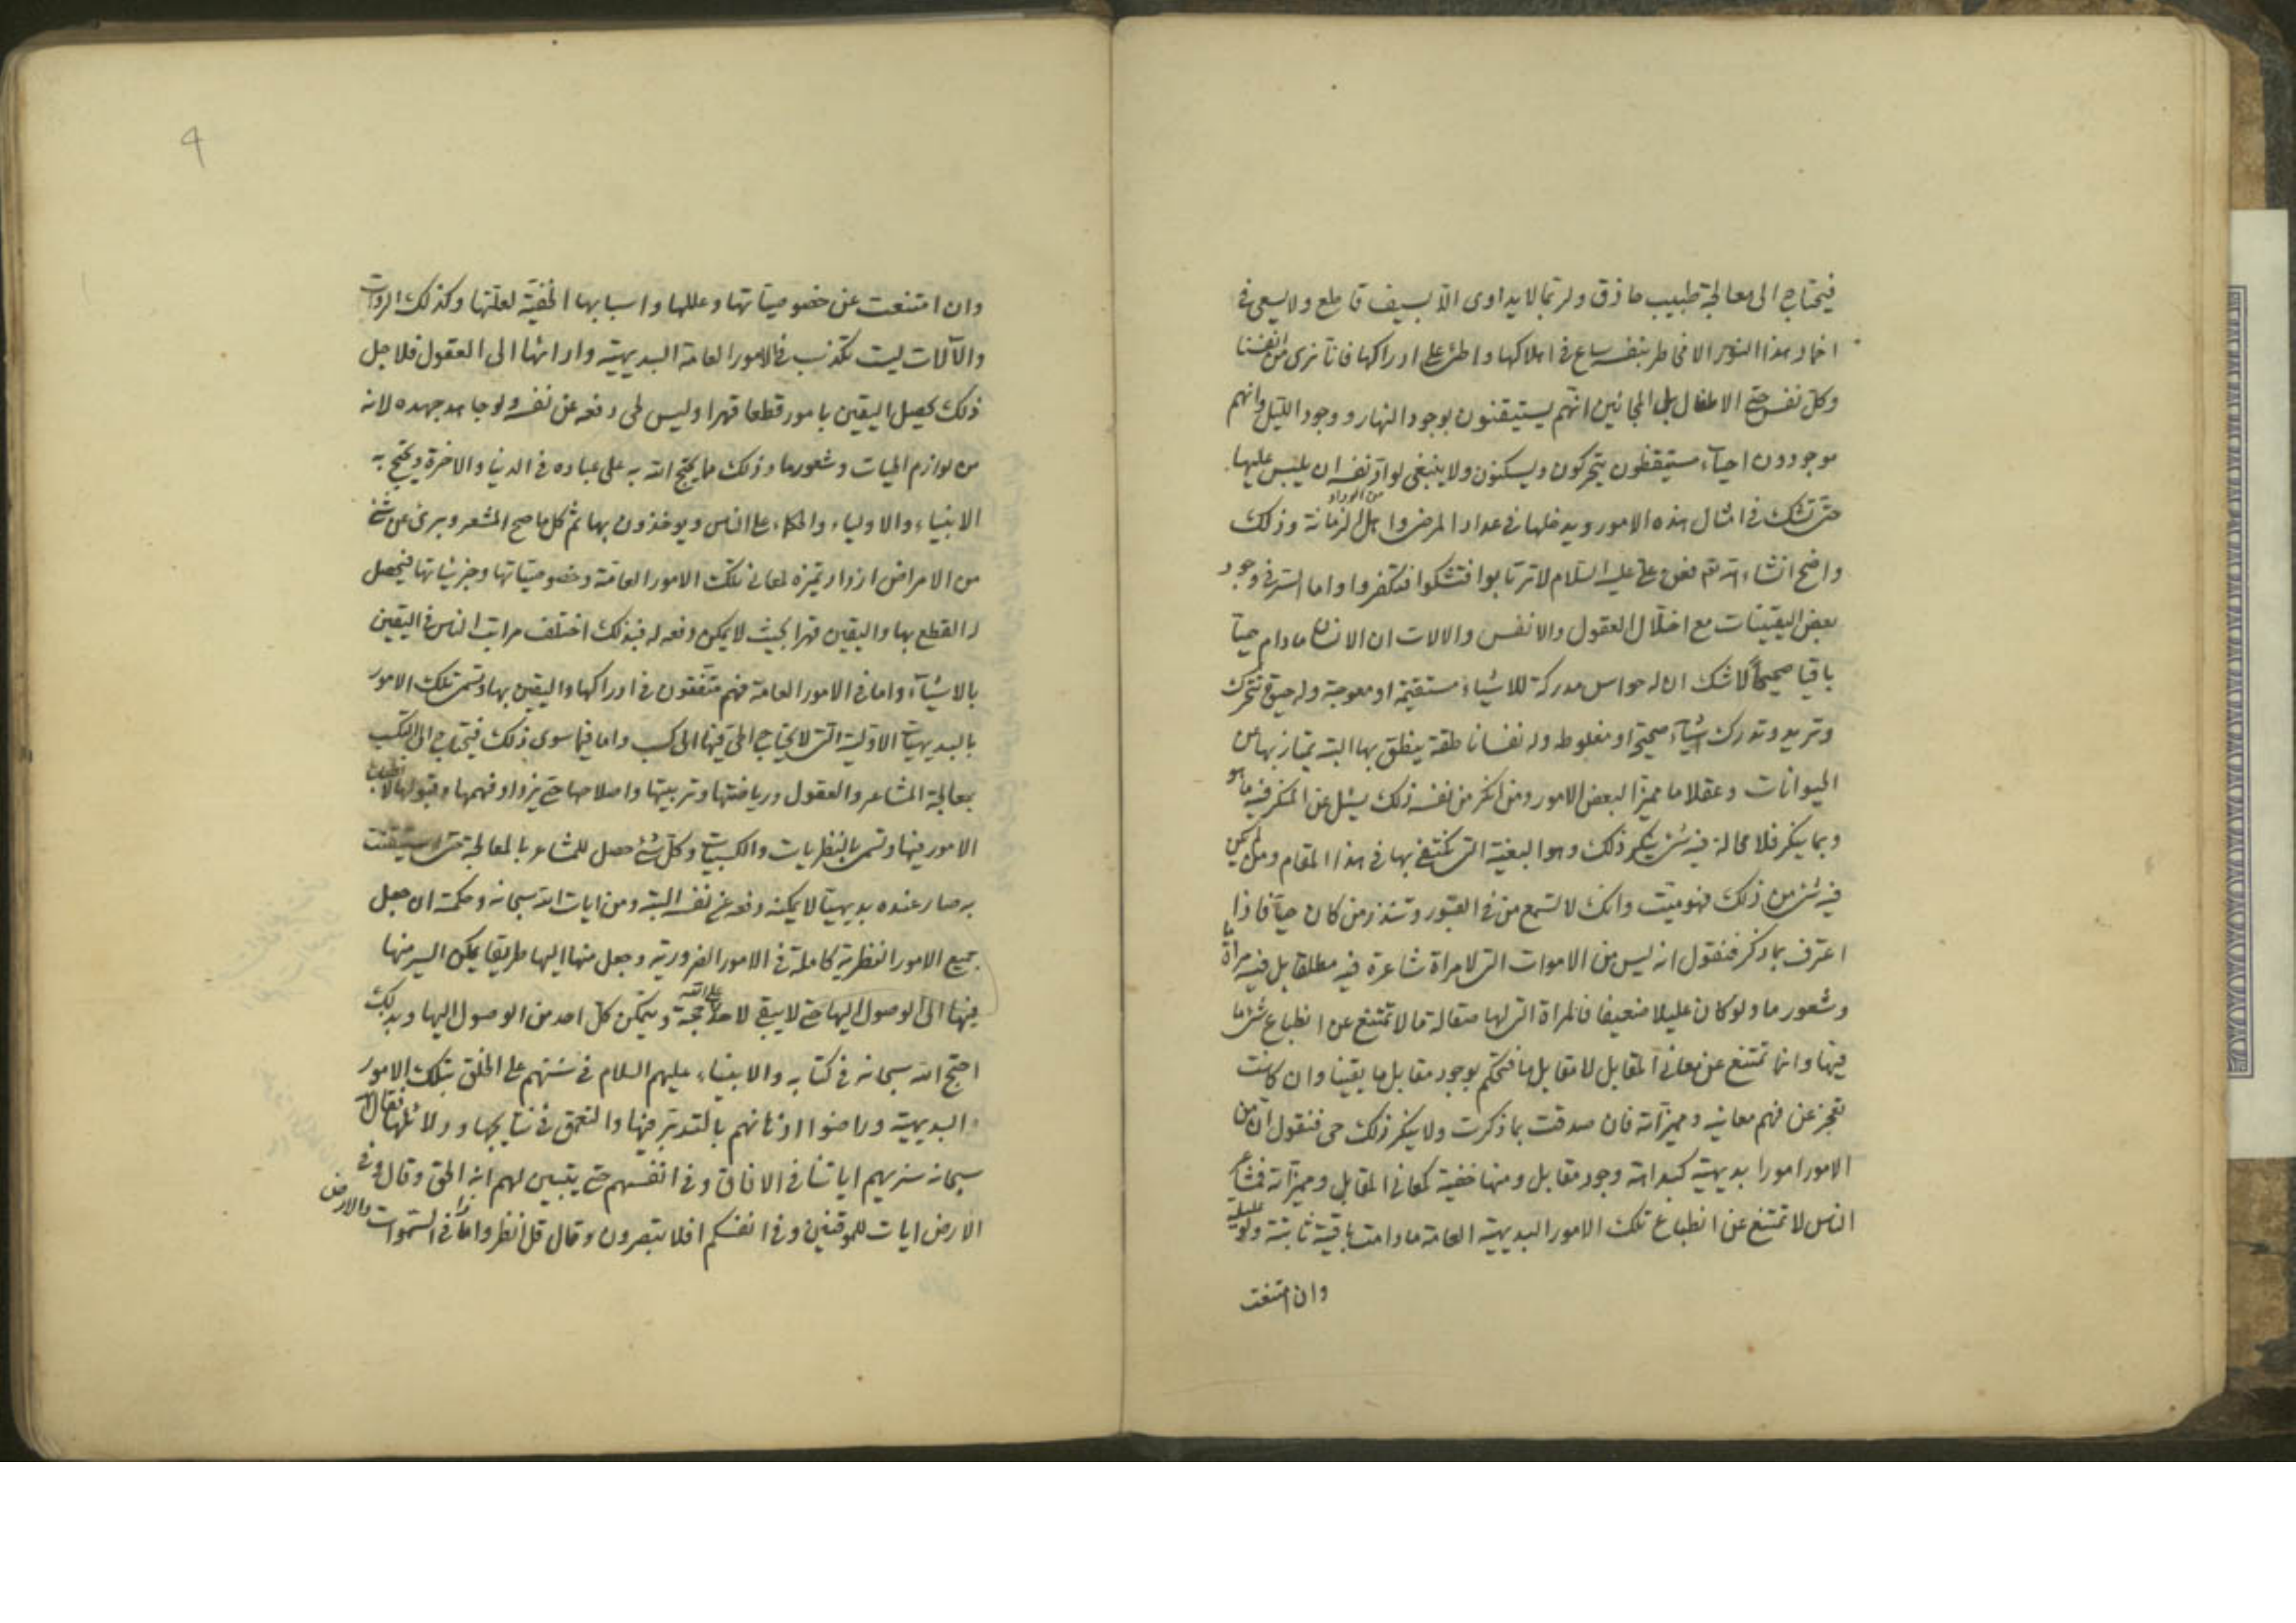 فيحتاج الى معالجة طبيب حاذق ولربما لا يداوى الا بسيف قاطع ولا يسعى فى
اخماد هذا النور الا مخاطر بنفسه ساع فى اهلاكها واطن على ادراكها فانا نرى من انفسنا
وكل نفس حتى الاطفال بل المجانين انهم يستيقنون بوجود النهار ووجود الليل وانهم
موجودون احياء مستيقظون يتحركون ويسكنون ولا ينبغى لواحد نفسه ان يلبس عليها
حتى تشك فى امثال هذه الامور ويدخلها فى عداد المرضى واهل الزمانة وذلك
واضح انشاء الله تعم فعن على عليه السلام لا ترتابوا فتشكوا فتكفروا واما السر فى وجود
بعض اليقينيات مع اختلال العقول والانفس والالات ان الانسان مادام حيا
باقيا صحيحا لا شك ان له حواس مدركة للاشياء مستقيمة او معوجة وله حيوة تتحرك
وتريد وتدرك اشياء صحيحة او مغلوطة وله نفسا ناطقة ينطق بها البتة يمتاز بها عن
الحيوانات وعقلا ما مميزا لبعض الامور ومن انكر من نفسه ذلك يسئل عن المنكر فيه ما هو
وبما ينكر فلا محالة فيه شئ ينكر ذلك وهو البغية التى نكتفى بها فى هذا المقام ومن لم يكن
فيه شئ من ذلك فهو ميت وانك لا تسمع من فى القبور وتنذر من كان حيا فاذا
اعترف بما ذكر فنقول انه ليس من الاموات التى لا مراة شاعرة فيه مطلقا بل فيه مراة ما
وشعور ما ولو كان عليلا ضعيفا فالمراة التى لها صقالة ما لا تمتنع عن انطباع شئ ما
فيها وانما تمتنع عن معانى المقابل لا مقابل ما فتحكم بوجود مقابل ما يقينا وان كانت
تعجز عن فهم معانيه ومميزاته فان صدقت بما ذكرت ولا ينكر ذلك حى فنقول ان من
الامور امورا بديهية كبداهة وجود مقابل ومنها خفية كمعانى المقابل ومميزاته فمشاعر
الناس لا تمتنع عن انطباع تلك الامور البديهية العامة مادامت باقية ثابتة ولو عليلة
وان امتنعت
وان امتنعت عن خصوصياتها وعللها واسبابها الخفية لعلتها وكذلك الروات
والآلات ليست تكذب فى الامور العامة البديهية وادائها الى العقول فلاجل
ذلك يحصل اليقين بامور قطعا قهرا وليس لحى دفعه عن نفسه ولو جاهد جهده لانه
من لوازم الحيات وشعور ما وذلك مما يحتج الله به على عباده فى الدنيا والاخرة ويحتج به
الانبياء والاولياء والحكماء على الناس ويوخذون بها ثم كل ما صح المشعر وبرئ عن شئ
من الامراض ازداد تميزه لمعانى تلك الامور العامة وخصوصياتها وجزئياتها فيحصل
له القطع بها واليقين قهرا بحيث لا يمكن دفعه له فبذلك اختلف مراتب الناس فى اليقين
بالاشياء واما فى الامور العامة فهم متفقون فى ادراكها واليقين بها وتسمى تلك الامور
بالبديهيات الاولية التى لا يحتاج الحى فيها الى كسب واما فيما سوى ذلك فيحتاج الى الكسب
بمعالجة المشاعر والعقول ورياضتها وتربيتها واصلاحها حتى يزداد فهمها وقبولها لانطباع
الامور فيها وتسمى بالنظريات والكسبيات وكل شئ حصل للمشاعر بالمعالجة حتى استيقنت
به صار عنده بديهيا لا يمكنه دفعه عن نفسه البتة ومن ايات الله سبحانه وحكمته ان جعل
جميع الامور النظرية كاملة فى الامور الضرورية وجعل منها اليها طريقا يمكن السير منها
فيها الى الوصول اليها حتى لا يبقى لاحد على الله حجة ويتمكن كل احد من الوصول اليها وبذلك
احتج الله سبحانه فى كتابه والانبياء عليهم السلام فى سننهم على الخلق بتلك الامور
البديهية وراضوا اذهانهم بالتدبر فيها والتعمق فى نتايجها ودلائلها فقال الله
سبحانه سنريهم اياتنا فى الافاق وفى انفسهم حتى يتبين لهم انه الحق وقال وفى
الارض ايات للموقنين وفى انفسكم افلا تبصرون وقال قل انظروا ماذا فى السموات والارض
4